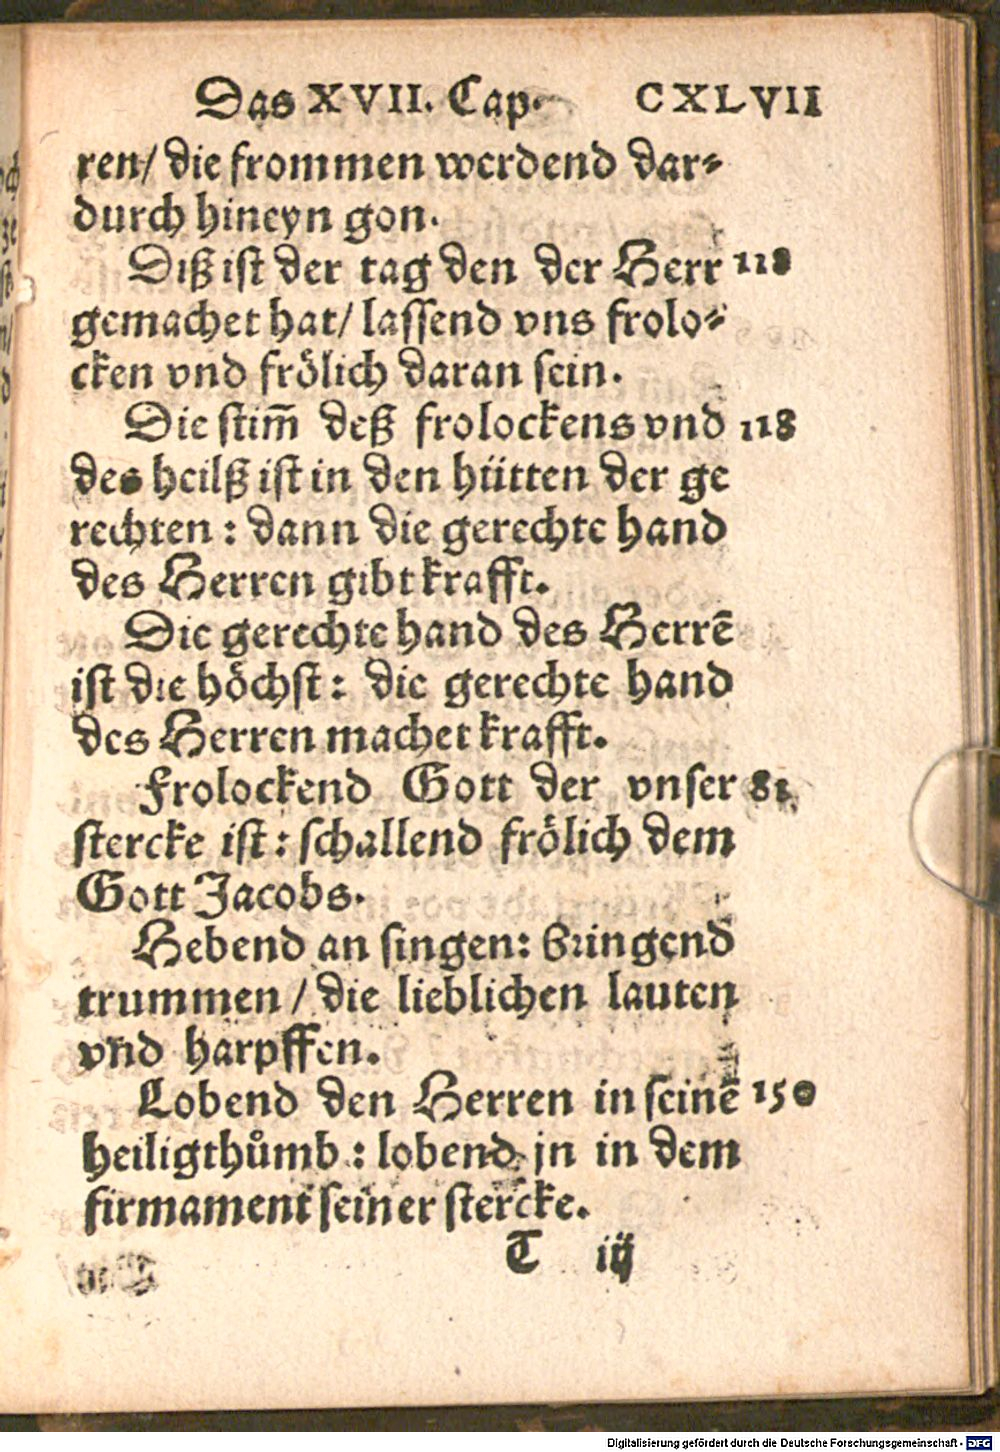 Das XVII. Cap. CXLVII
ren/ die frommen werdend dar⸗
durch hineyn gon.
Diß ist der tag den der Herr 118
gemachet hat/ lassend vns frolo⸗
cken vnd frölich daran sein.
Die stim̄ deß frolockens vnd 118
des heilß ist in den hütten der ge
rechten : dann die gerechte hand
des Herren gibt krafft.
Die gerechte hand des Herrē
ist die höchst : die gerechte hand
des Herren machet krafft.
Frolockend Gott der vnser 81
stercke ist : schallend frölich dem
Gott Jacobs.
Hebend an singen: bringend
trummen / die lieblichen lauten
vnd harpffen.
Lobend den Herren in seinē 150
heiligthůmb : lobend jn in dem
firmament seiner stercke.
T iij
Digitalisierung gefördert durch die Deutsche Forschungsgemeinschaft - DFG